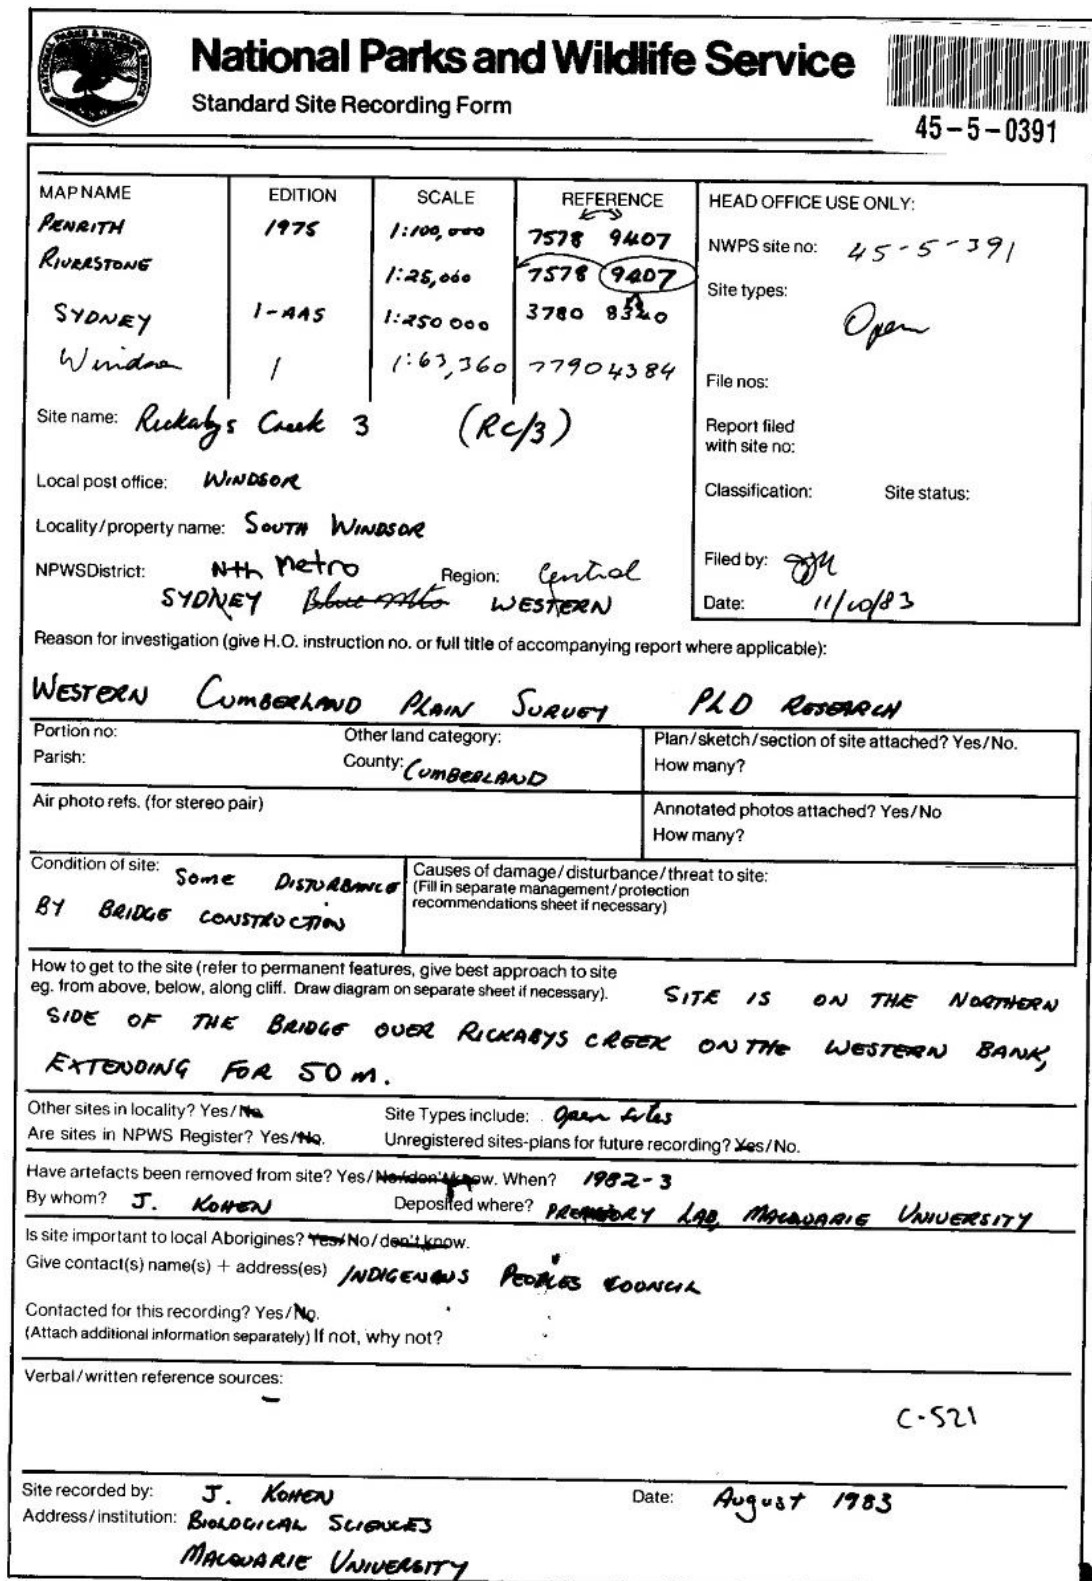 National Parks and Wildlife Service
Standard Site Recording Form
45-5-0391
MAP NAME EDITION SCALE REFERENCE
PENRITH 1975 1:100,000 7578 9407
RIVERSTONE 1:25,000 7578 9407
SYDNEY 1-AAS 1:250 000 3780 8340
Windsor 1 1:63,360 77904384
HEAD OFFICE USE ONLY:
NWPS site no: 45-5-391
Site types:
Open
File nos:
Report filed
with site no:
Classification: Site status:
Filed by:
Date: 11/10/83
Site name: Rickabys Creek 3 (RC/3)
Local post office: WINDSOR
Locality/property name: SOUTH WINDSOR
NPWS District: Nth Metro Region: Central
SYDNEY Blue Mts WESTERN
Reason for investigation (give H.O. instruction no. or full title of accompanying report where applicable):
WESTERN CUMBERLAND PLAIN SURVEY PhD RESEARCH
Portion no: Other land category:
Parish: County: CUMBERLAND
Plan/sketch/section of site attached? Yes/No.
How many?
Air photo refs. (for stereo pair)
Annotated photos attached? Yes/No
How many?
Condition of site: SOME DISTURBANCE
BY BRIDGE CONSTRUCTION
Causes of damage/disturbance/threat to site:
(Fill in separate management/protection
recommendations sheet if necessary)
How to get to the site (refer to permanent features, give best approach to site
eg. from above, below, along cliff. Draw diagram on separate sheet if necessary). SITE IS ON THE NORTHERN
SIDE OF THE BRIDGE OVER RICKABYS CREEK ON THE WESTERN BANK,
EXTENDING FOR 50 m.
Other sites in locality? Yes/No Site Types include: Open sites
Are sites in NPWS Register? Yes/No. Unregistered sites-plans for future recording? Yes/No.
Have artefacts been removed from site? Yes/No/don't know. When? 1982-3
By whom? J. KOHEN Deposited where? PREHISTORY LAB, MACQUARIE UNIVERSITY
Is site important to local Aborigines? Yes/No/don't know.
Give contact(s) name(s) + address(es) INDIGENOUS PEOPLES COUNCIL
Contacted for this recording? Yes/No.
(Attach additional information separately) If not, why not?
Verbal/written reference sources:
–
C-521
Site recorded by: J. KOHEN Date: August 1983
Address/institution: BIOLOGICAL SCIENCES
MACQUARIE UNIVERSITY